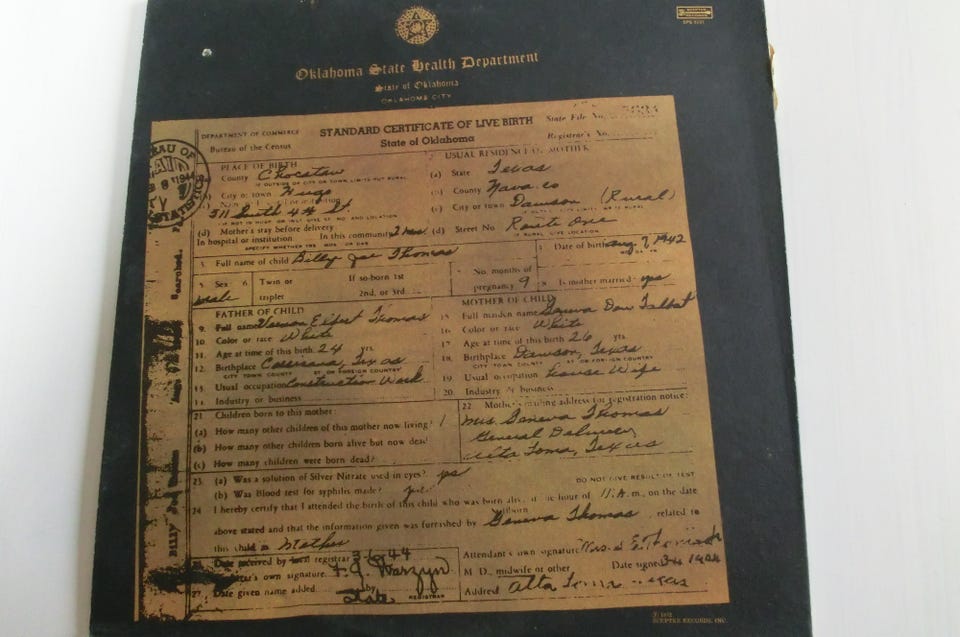 SCEPTER
RECORDS
Oklahoma State Health Department
State of Oklahoma
OKLAHOMA CITY
DEPARTMENT OF COMMERCE
Bureau of the Census
STANDARD CERTIFICATE OF LIVE BIRTH
State of Oklahoma
State File No.
Registrar's No.
PLACE OF BIRTH
County Chocataw
IF OUTSIDE OF CITY OR TOWN LIMITS PUT RURAL
City or town Hugo
511 South 4th St
(d) Mother's stay before delivery
In hospital or institution In this community 2 mos.
SPECIFY WHETHER
USUAL RESIDENCE OF MOTHER
(a) State Texas
(b) County Navaro
(c) City or town Dawson (Rural)
(d) Street No. Route One
IF RURAL GIVE LOCATION
3. Full name of child Billy Joe Thomas
4. Date of birth Aug 7, 1942
5. Sex male
6. Twin or triplet
If so-born 1st
2nd, or 3rd
No. months of
pregnancy 9
Is mother married yes
FATHER OF CHILD
9. Full name Vernon Elbert Thomas
10. Color or race White
11. Age at time of this birth 24 yrs.
12. Birthplace Corsicana, Texas
CITY TOWN COUNTY ST OR FOREIGN COUNTRY
13. Usual occupation Construction Work
14. Industry or business
MOTHER OF CHILD
15. Full maiden name Geneva Talbat
16. Color or race White
17. Age at time of this birth 26 yrs.
18. Birthplace Dawson, Texas
CITY TOWN COUNTY ST OR FOREIGN COUNTRY
19. Usual occupation House Wife
20. Industry or business
21. Children born to this mother:
(a) How many other children of this mother now living? 1
(b) How many other children born alive but now dead?
(c) How many children were born dead?
22. Mother's mailing address for registration notice:
Mrs. Geneva Thomas
General Delivery
Alta Loma, Texas
23. (a) Was a solution of Silver Nitrate used in eyes? yes
(b) Was Blood test for syphilis made? yes
DO NOT GIVE RESULT OF TEST
24. I hereby certify that I attended the birth of this child who was born alive at the hour of 11 A.m., on the date
above stated and that the information given was furnished by Geneva Thomas related to
this child as Mother
Date received by local registrar 3-6-44
own signature. F. J. Warzyn
27. Date given name added by State REGISTRAR
Attendant's own signature Mrs.
M. D., midwife or other
Date signed
Address Alta Loma Texas
BUREAU OF
1944
STATISTICS
Searched.
Billy Joe Thomas
SCEPTER RECORDS, INC.